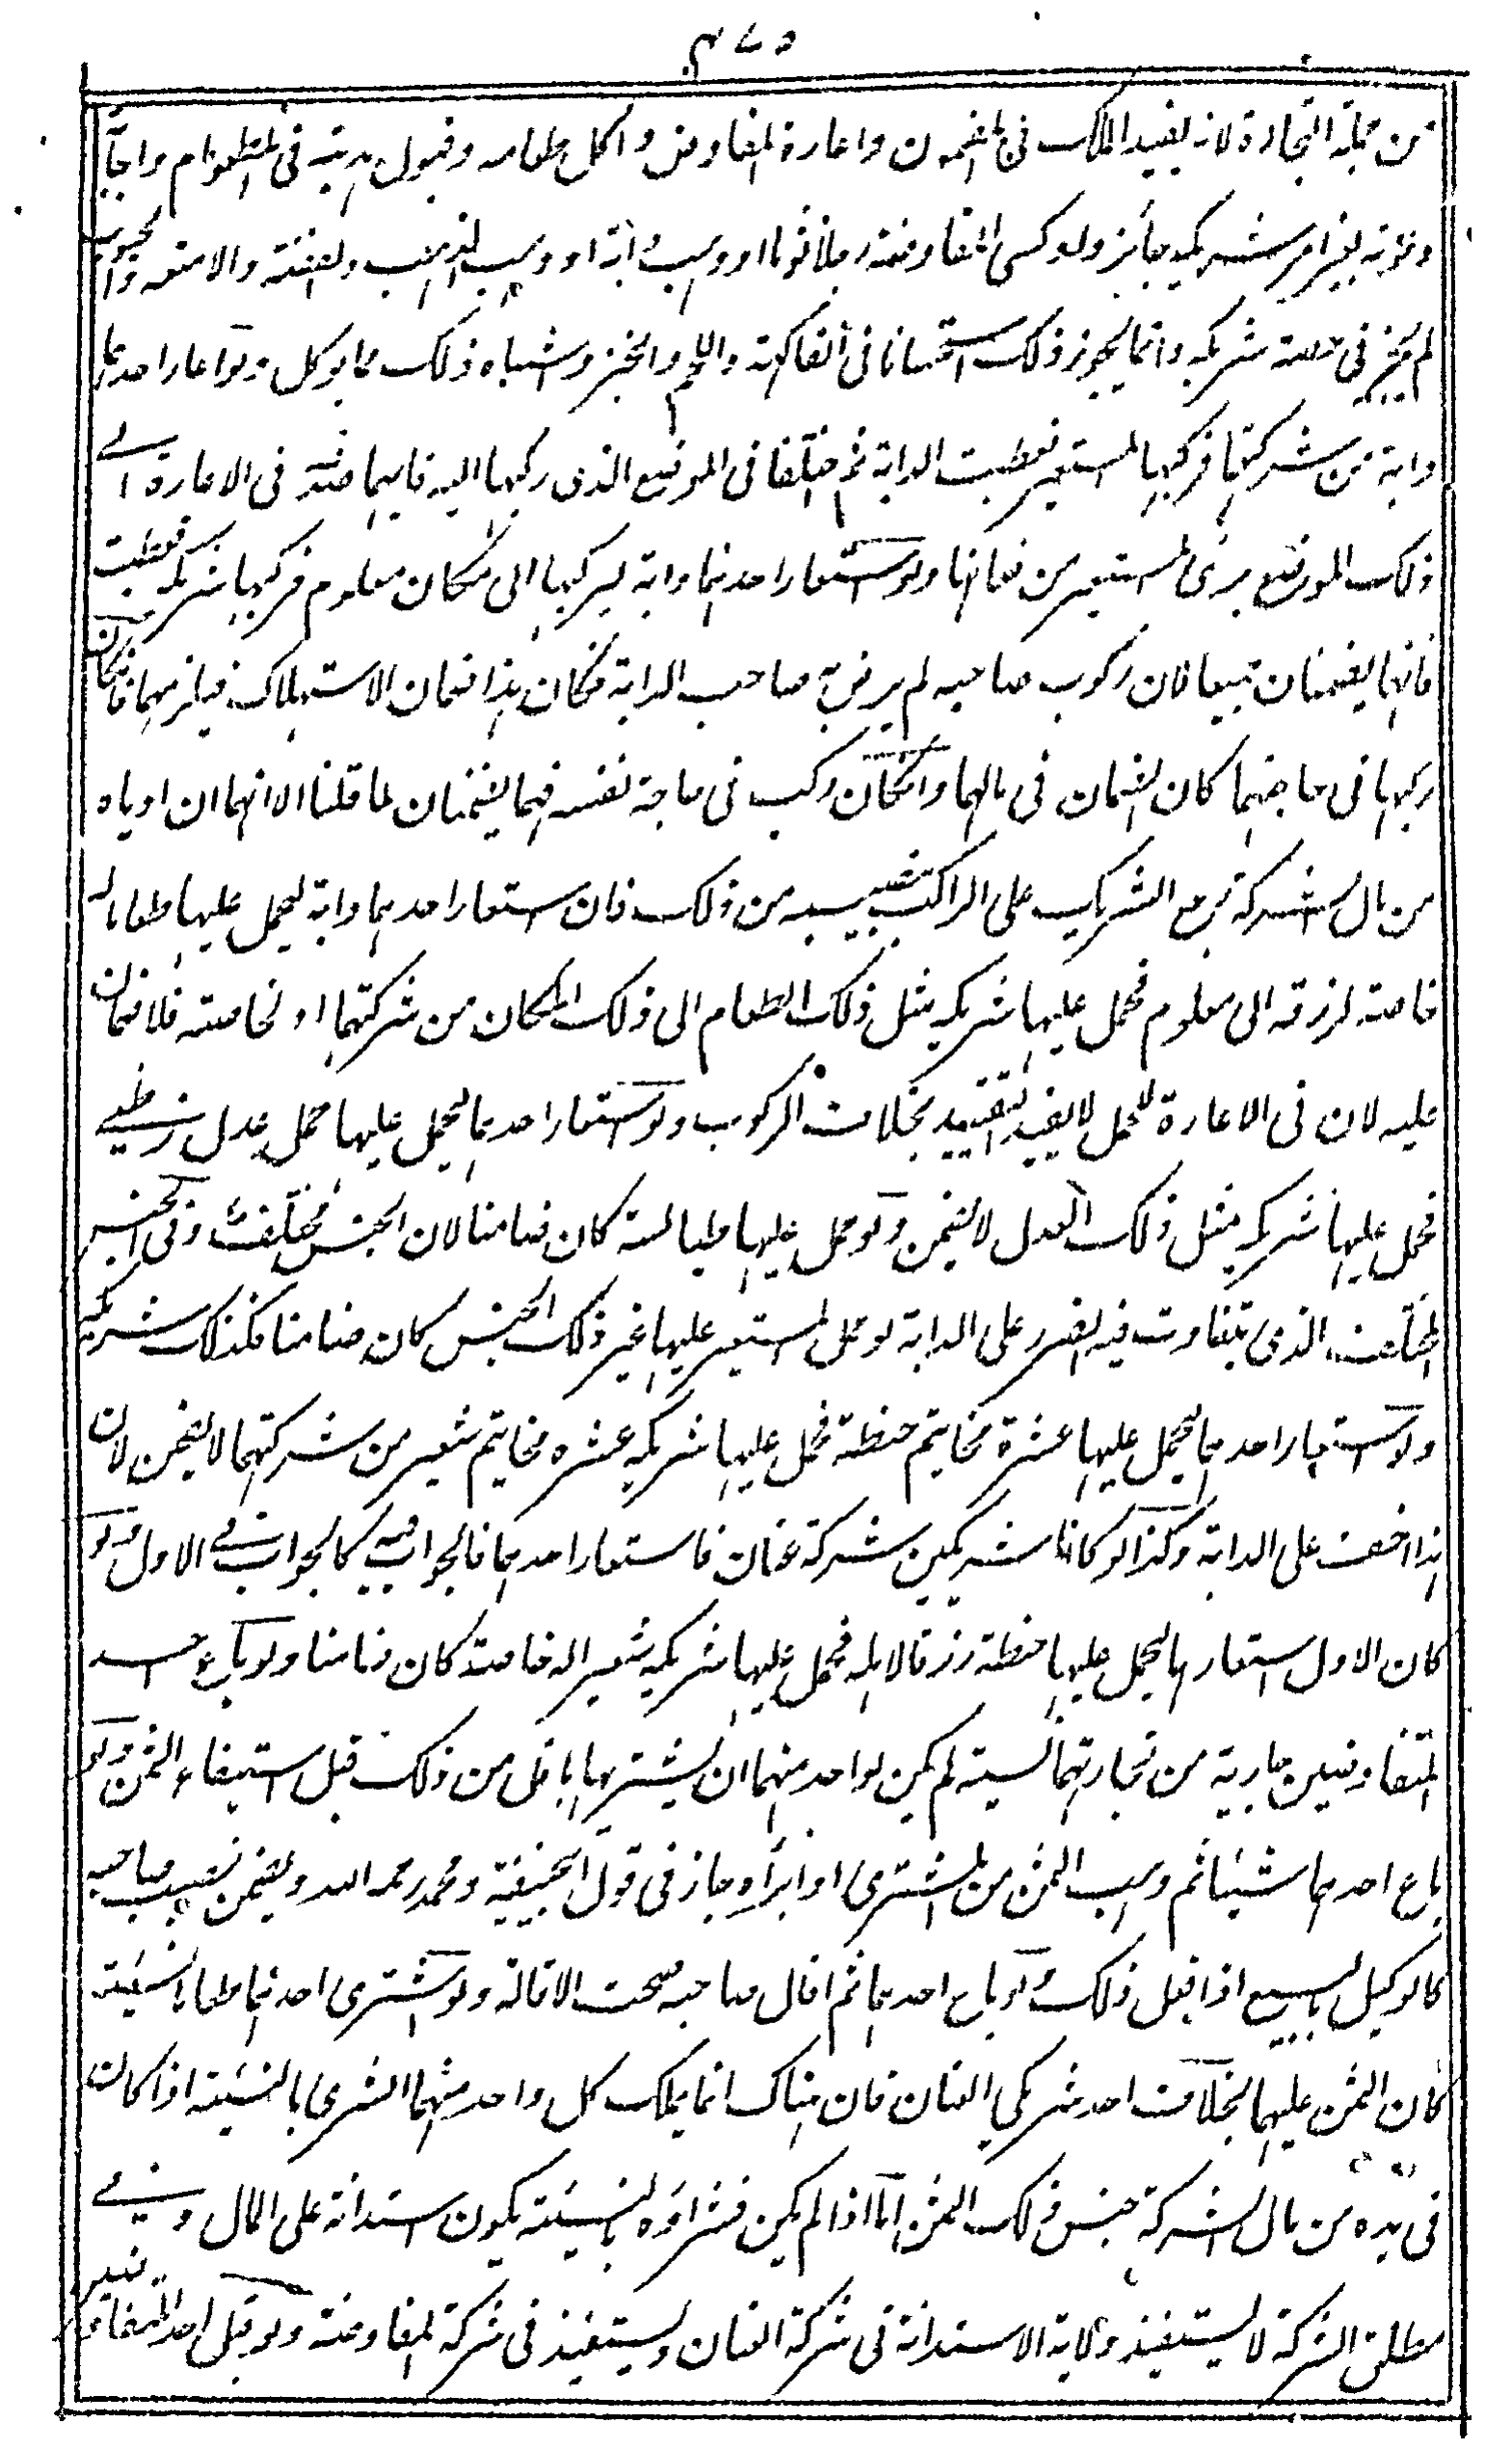 ٤٧٥
من جملة التجارة لانه يفيد الملك فى المضمون واعارة المفاوض واكل طعامه وقبول هديته فى المطعوم واجابة
دعوته بغير امر شريكه جائز ولو كسى المفاوضة رجلا ثوبا او وهب دابة او وهب الذهب والفضة والامتعة والحبوب
لم يجز فى حصة شريكه وانما يجوز ذلك استحسانا فى الفاكهة واللحم والخبز واشباه ذلك مما يوكل ولو اعار احدهما
دابة من شركتهما فركبها المستعير فعطبت الدابة ثم اختلفا فى الموضع الذى ركبها اليه فايهما صدقه فى الاعارة الے
ذلك الموضع برئ المستعير من ضمانها ولو استعار احدهما دابة ليركبها الى مكان معلوم فركبها شريكه فعطبت
فانهما يضمنان جميعا لان ركوب صاحبه لم يرض به صاحب الدابة فكان هذا ضمان الاستهلاك فيلزمهما فان كان
ركبها فى حاجتهما كان الضمان فى مالهما وان كان ركب فى حاجة نفسه فهما يضمنان لما قلنا الا انهما ان ادياه
من مال الشركة يرجع الشريك على الراكب بنصيبه من ذلك فان استعار احدهما دابة ليحمل عليها طعاما له
خاصة لرزقه الى معلوم فحمل عليها شريكه مثل ذلك الطعام الى ذلك المكان من شركتهما او لخاصته فلا ضمان
عليه لان فى الاعارة للحمل لا يفيد التقييد بخلاف الركوب ولو استعار احدهما ليحمل عليها حمل عدل زطے
فحمل عليها شريكه مثل ذلك العدل لا يضمن ولو حمل عليها طيالسة كان ضامنا لان الجنس مختلف وفى الجنس
المختلف الذى يتفاوت فيه الضرر على الدابة لو حمل المستعير عليها غير ذلك الجنس كان ضامنا فكذلك شريكه
ولو استعار احدهما ليحمل عليها عشرة مخاتيم حنطة فحمل عليها شريكه عشره مخاتيم شعير من شركتهما لا يضمن لان
هذا اخف على الدابة وكذا لو كانا شريكين شركة عنان فاستعار احدهما فالجواب فيه كالجواب فے الاول ولو
كان الاول استعارها ليحمل عليها حنطة رزقا لاهله فحمل عليها شريكه شعيرا له خاصة كان ضامنا ولو باع احد
المتفاوضين جارية من تجارتهما نسية لم يكن لواحد منهما ان يشتريها باقل من ذلك قبل استيفاء الثمن ولو
باع احدهما شيئا ثم وهب الثمن من المشترى او ابرأه جاز فى قول ابيحنيفة ومحمد رحمه الله ويضمن نصيب صاحبه
كالوكيل بالبيع اذا فعل ذلك ولو باع احدهما ثم اقال صاحبه صحت الاقالة ولو اشترى احدهما طعاما بالنسيئة
كان الثمن عليهما بخلاف احد شريكي العنان فان هناك انما يملك كل واحد منهما الشرى بالنسيئة اذا كان
فى يده من مال الشركة جنس ذلك الثمن اما اذا لم يكن فشراؤه بالنسيئة يكون استدانة على المال وفے
مطلق الشركة لا يستفيذ ولاية الاستدانة فى شركة العنان ويستفيذ فى شركة المفاوضة ولو قبل احد المتفاوضين